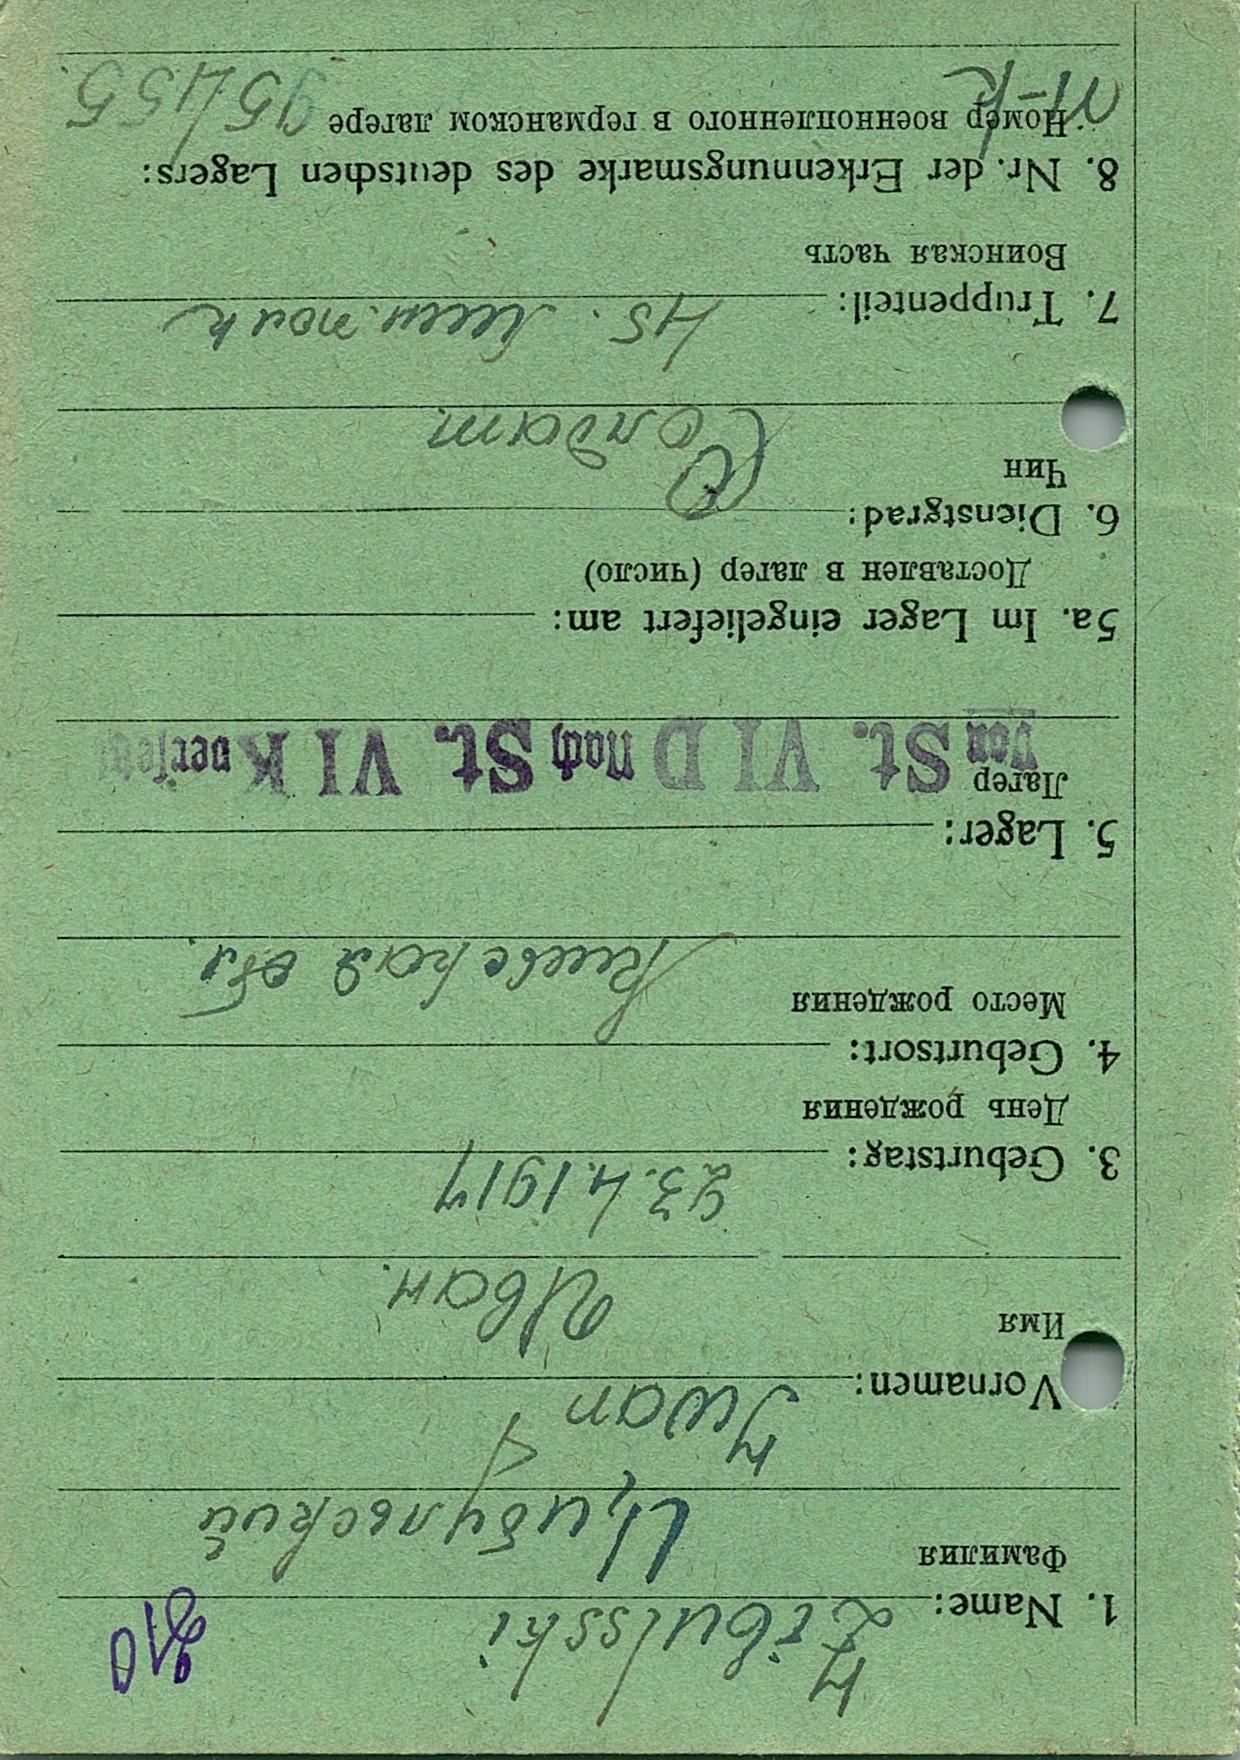 210
1. Name: Zibulsski
Фамилия Цибульский
Vornamen: Iwan
Имя Иван.
3. Geburtstag: 23.4.1917
День рождения
4. Geburtsort:
Место рождения Киевская обл.
5. Lager:
Лагер Von St. VI D nach St. VI K versetzt
5a. Im Lager eingeliefert am:
Доставлен в лагер (число)
6. Dienstgrad:
Чин Солдат.
7. Truppenteil: 45. полк
Воинская часть
8. Nr. der Erkennungsmarke des deutschen Lagers:
Номер военнопленного в германском лагере 95455